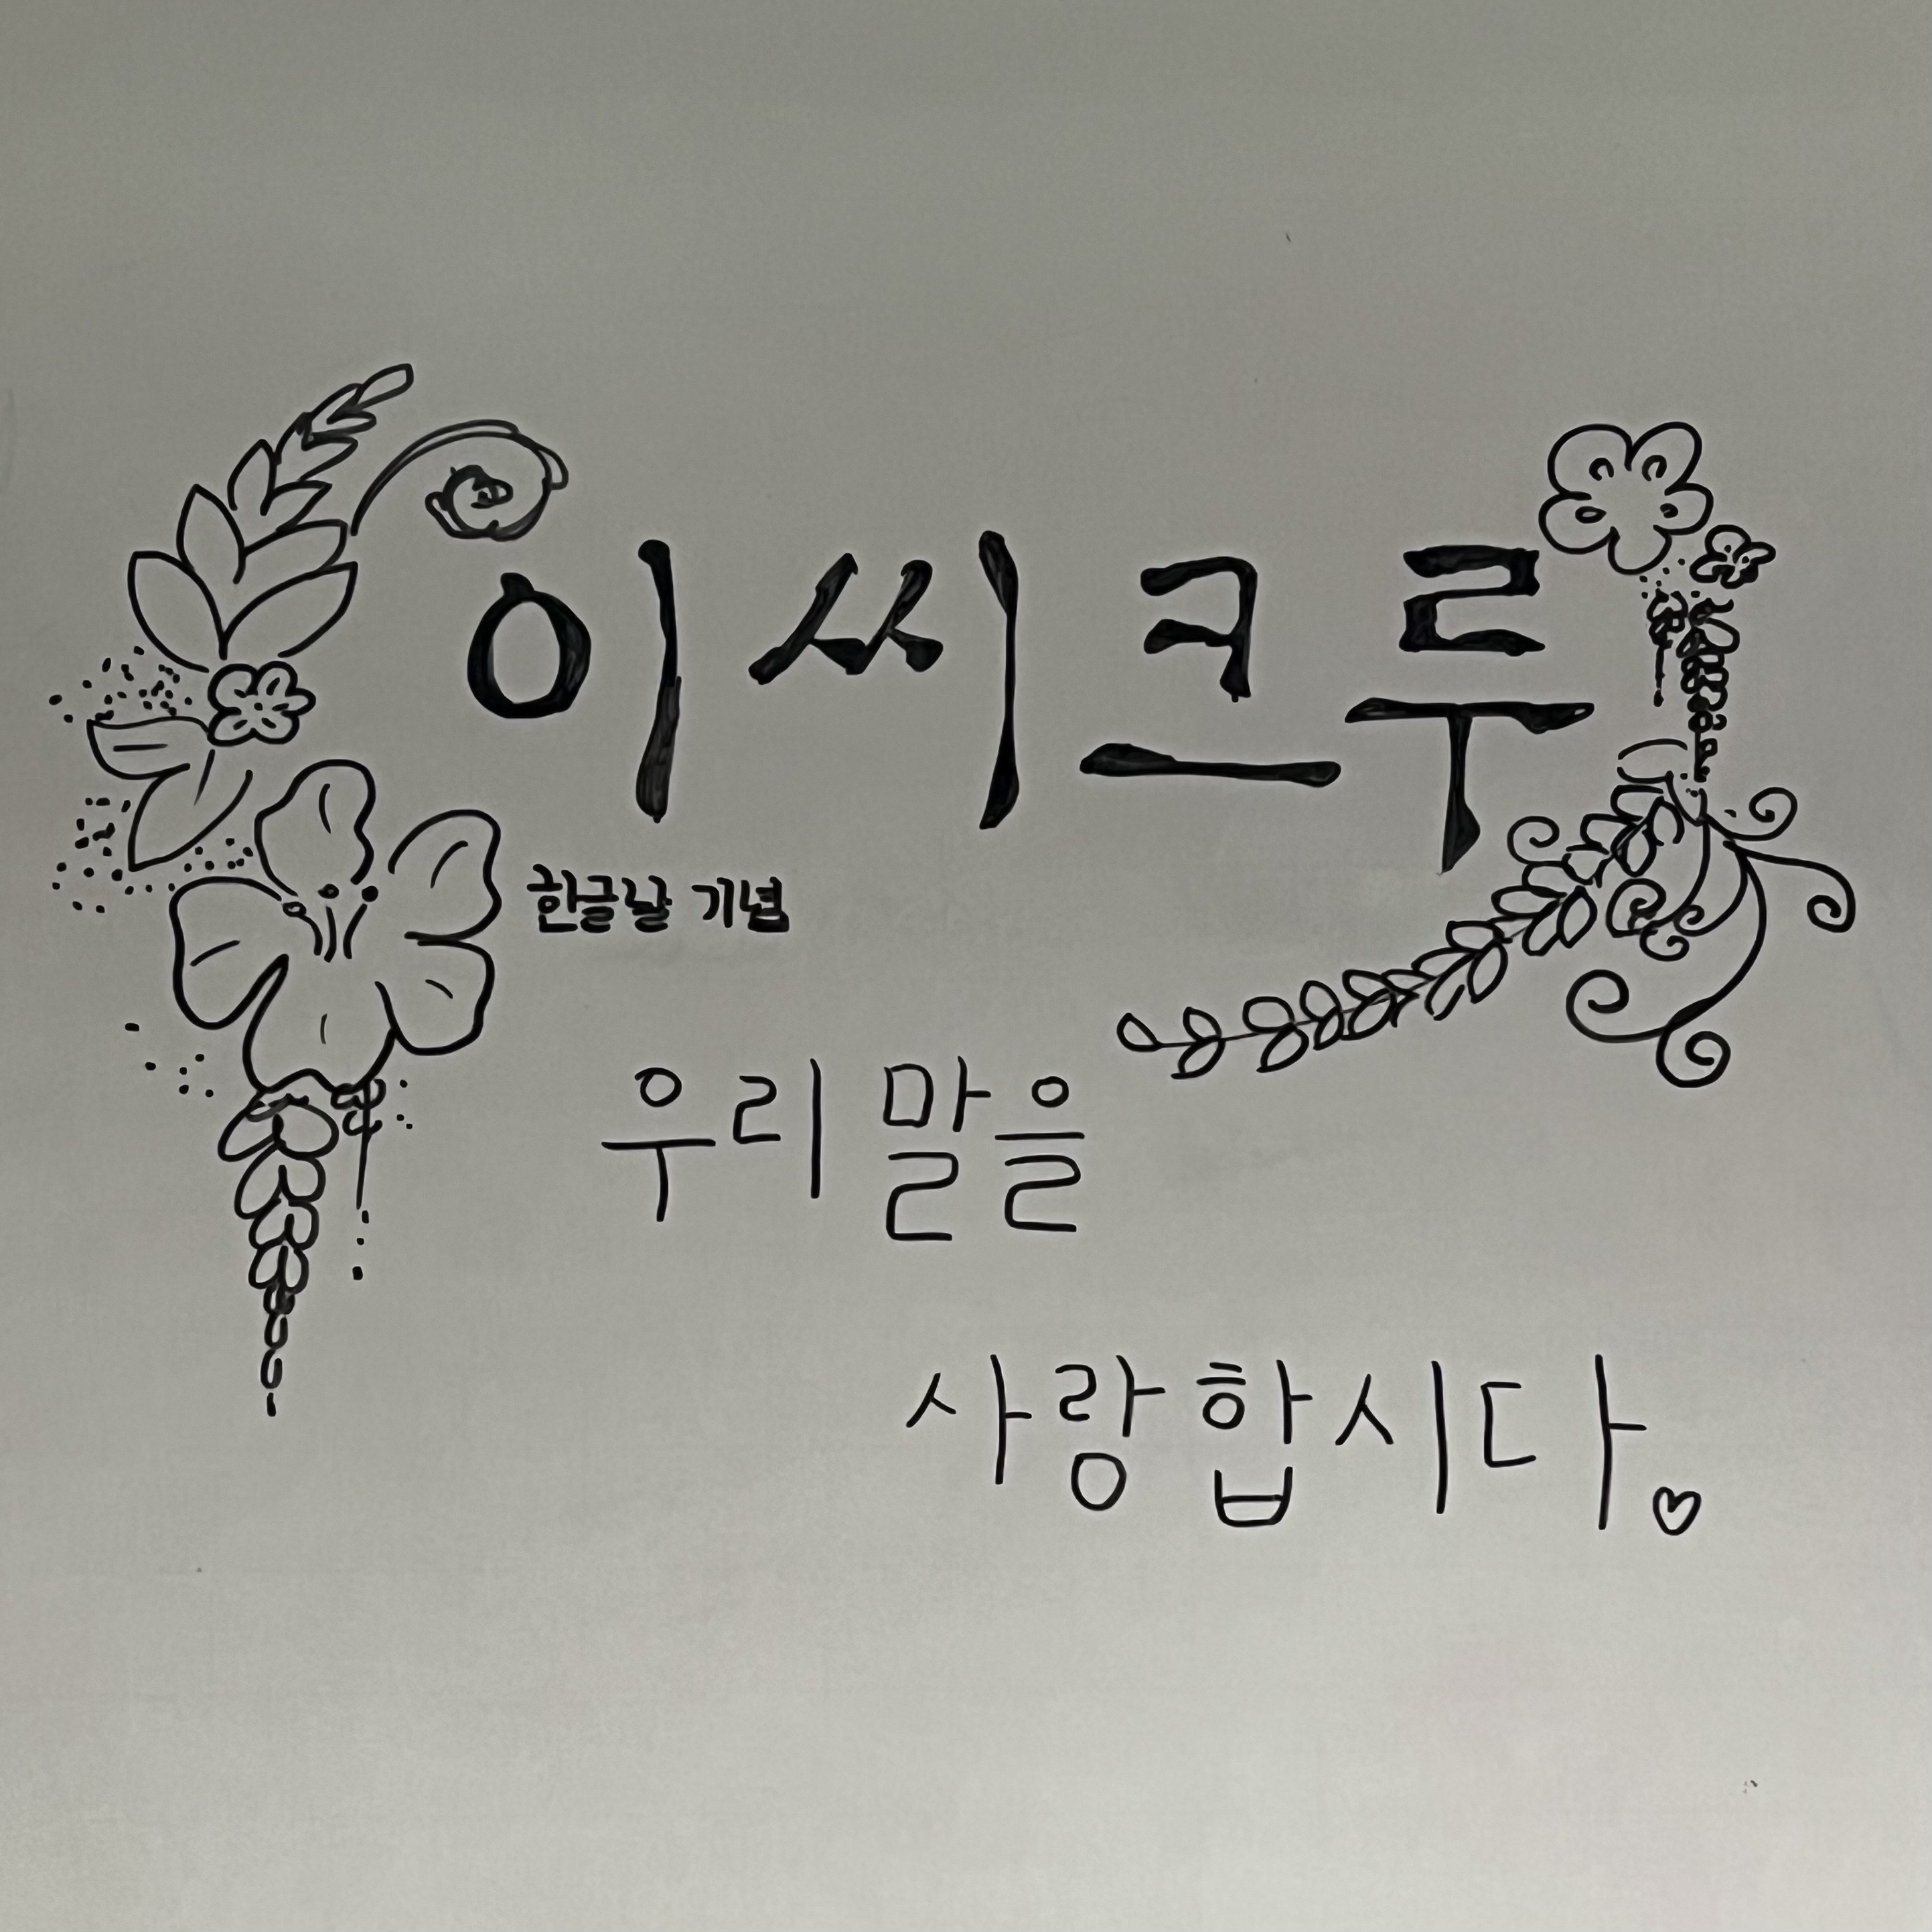 이씨크루
한글날 기념
우리 말을
사랑합시다.